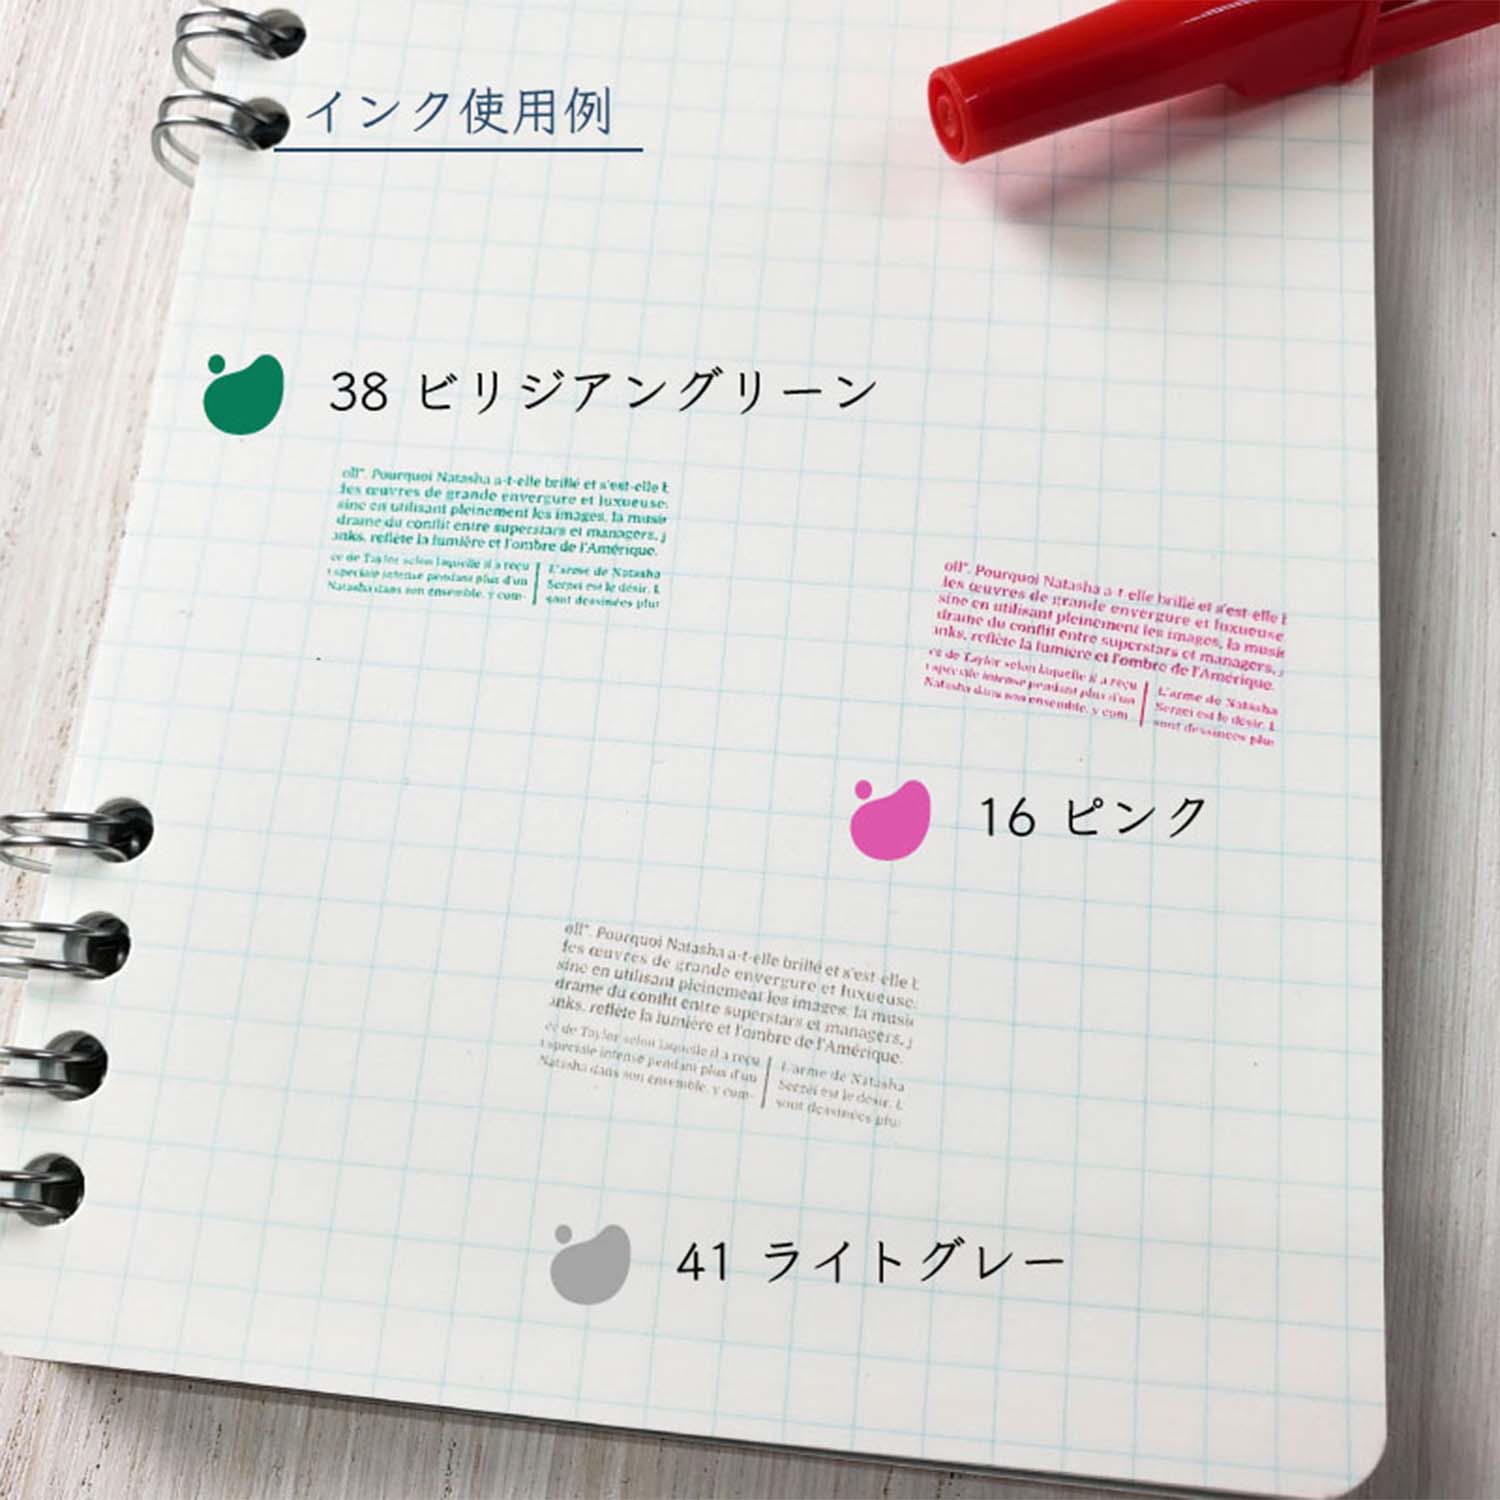 インク使用例
38 ビリジアングリーン
oll". Pourquoi Natasha a-t-elle brillé et s'est-elle
les œuvres de grande envergure et luxueuse
sine en utilisant pleinement les images, la musi
drame du conflit entre superstars et managers, j
anks, reflète la lumière et l'ombre de l'Amérique.
ce de Taylor selon laquelle il a reçu
t spéciale intense pendant plus d'un
Natasha dans son ensemble, y com-
L'arme de Natasha
Sergei est le désir. L
sont dessinées plu
oll". Pourquoi Natasha a-t-elle brillé et s'est-elle
les œuvres de grande envergure et luxueuse
sine en utilisant pleinement les images, la musi
drame du conflit entre superstars et managers, j
anks, reflète la lumière et l'ombre de l'Amérique.
ce de Taylor selon laquelle il a reçu
t spéciale intense pendant plus d'un
Natasha dans son ensemble, y com
L'arme de Natasha
Sergei est le désir. L
sont dessinées plu
16 ピンク
oll". Pourquoi Natasha a-t-elle brillé et s'est-elle
les œuvres de grande envergure et luxueuse.
sine en utilisant pleinement les images, la musi
drame du conflit entre superstars et managers, j
anks, reflète la lumière et l'ombre de l'Amérique.
ce de Taylor selon laquelle il a reçu
t spéciale intense pendant plus d'un
Natasha dans son ensemble, y com-
L'arme de Natasha
Sergei est le désir. L
sont dessinées plu
41 ライトグレー